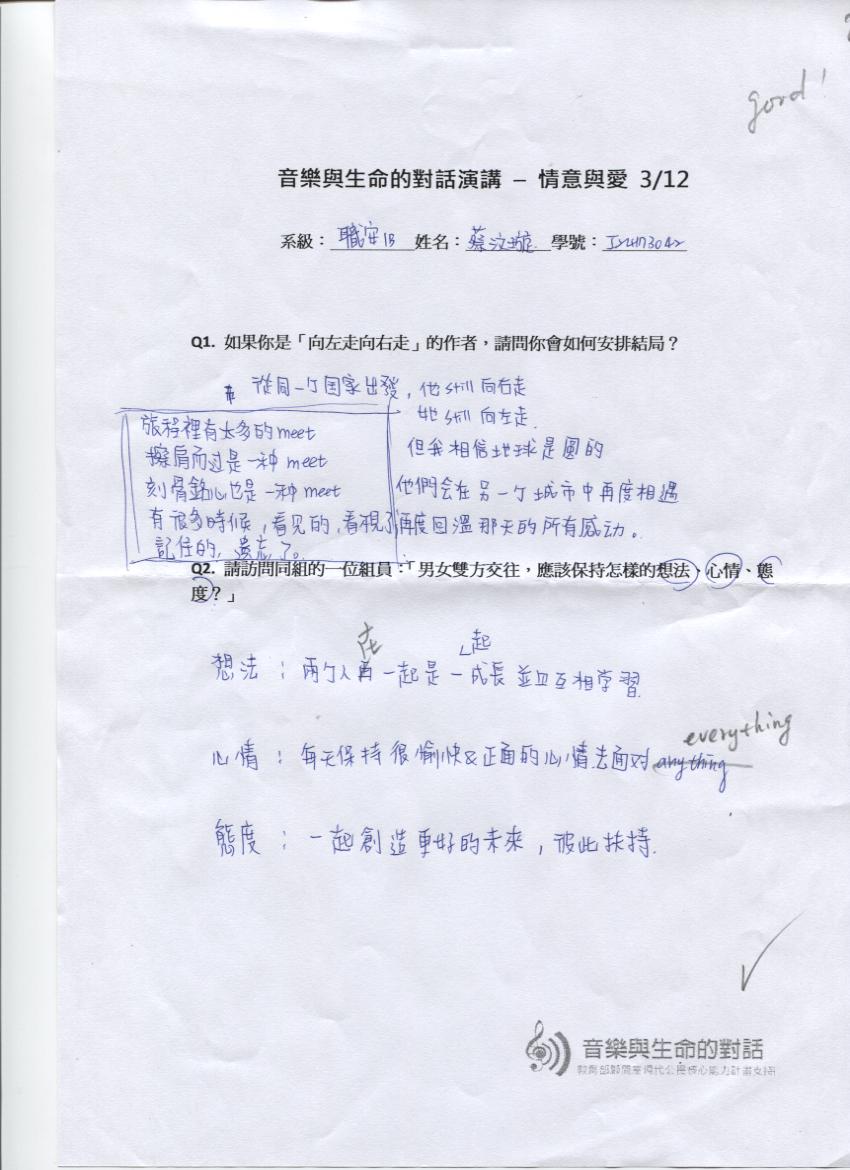 good!
音樂與生命的對話演講 – 情意與愛 3/12
系級：職安1B 姓名：蔡汶璇 學號：
Q1. 如果你是「向左走向右走」的作者，請問你會如何安排結局？
從同一个国家出發，他 still 向右走
她 still 向左走.
但我相信地球是圓的
他們会在另一个城市中再度相遇
再度回溫那天的所有感动。
旅程裡有太多的 meet
擦肩而过是一种 meet
刻骨銘心也是一种 meet
有很多時候，看见的，看視了
記住的，遺忘了。
Q2. 請訪問同組的一位組員：「男女雙方交往，應該保持怎樣的想法、心情、態
度？」
在 起
想法：兩个人再一起是一成長並且互相学習.
everything
心情：每天保持很愉快&正面的心情去面对 anything
態度：一起創造更好的未來，彼此扶持.
音樂與生命的對話
教育部顧問室現代公民核心能力計畫支持